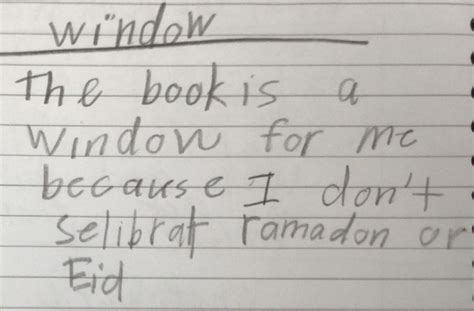 window
The book is a
window for me
because I don't
selibrat ramadon or
Eid